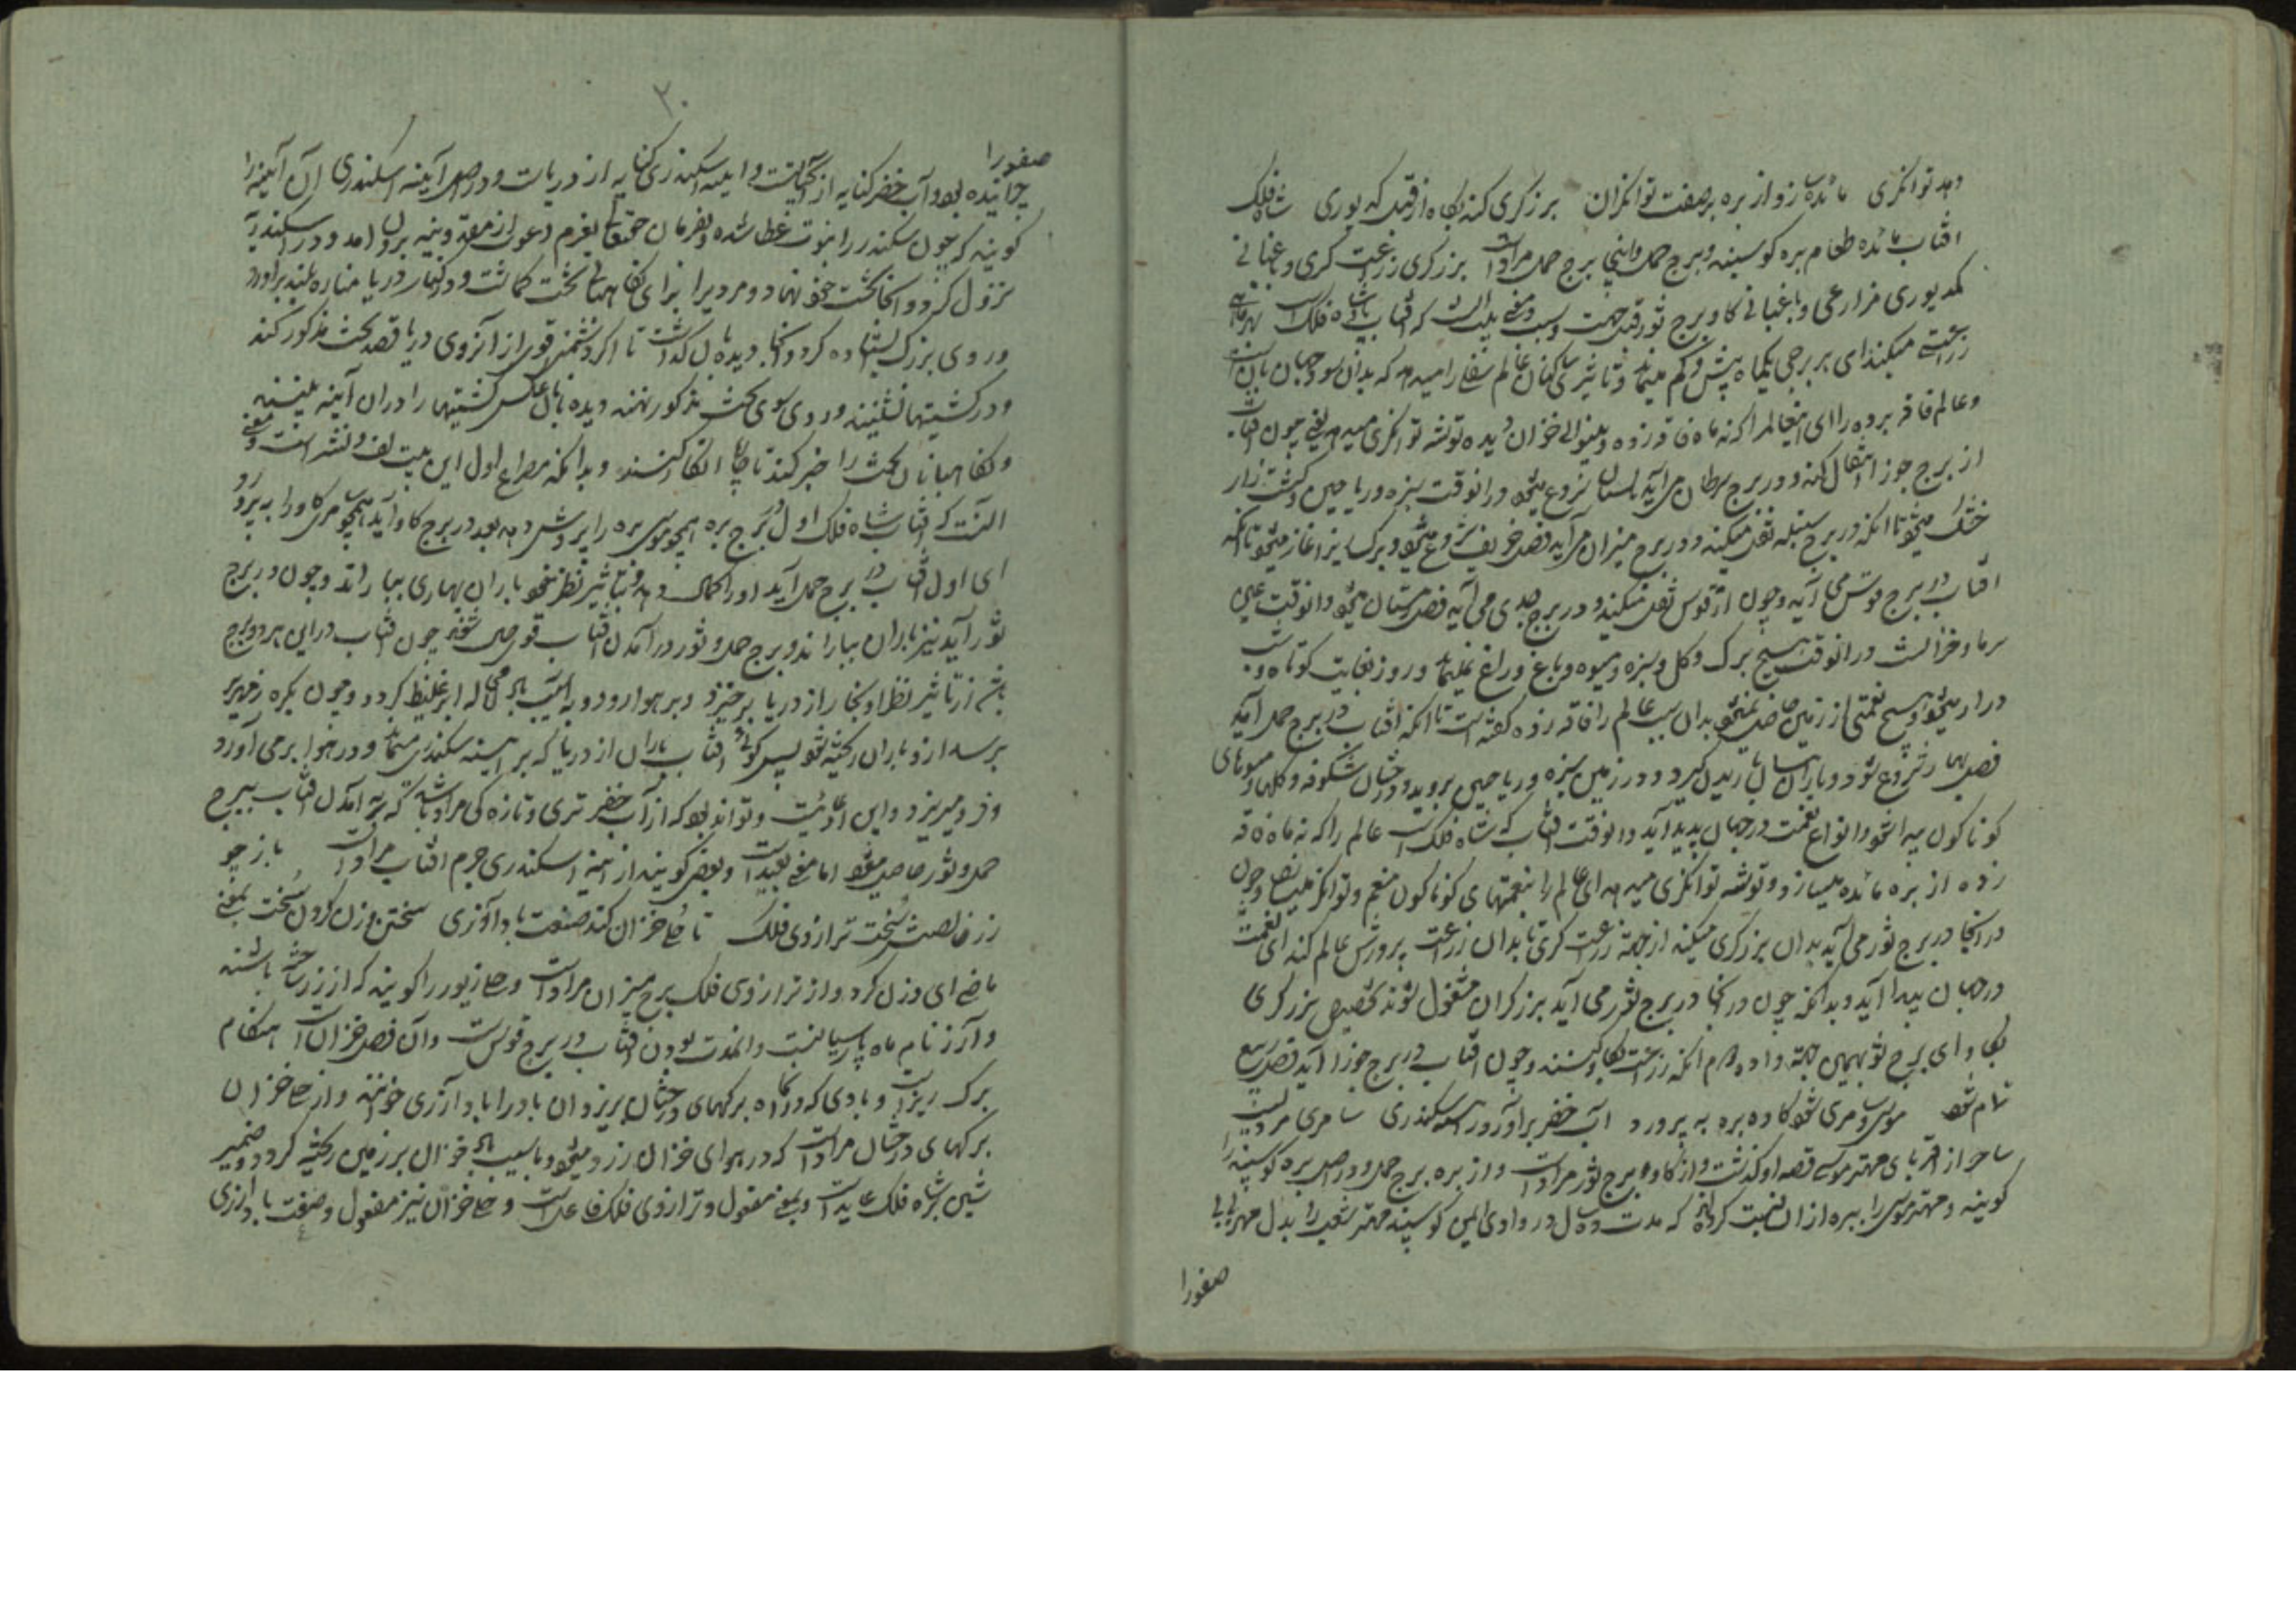 دهد توانگری مائده سازد از بره بر صفت توانگران برزگری کند بگاه از قبل کدیوری شاه فلک
افتاب مائده طعام بره گوسپند و برج حمل و اینجا برج حمل مرادست برزگری زراعت گری و باغبانی
کدیوری مزارعی و باغبانی گاو برج ثور قبل جهت و سبب و معنی بیت انست که افتاب پادشاه فلک است
زراعت میکند ای بر برجی یکماه پیش و کم میماند و تاثیر ساکنان عالم سفلی را میدهد که بدان سود جهان
و عالم فاقه برده را ای اینعالم را که نه ماه فاقه زده و بینوائی خزان دیده توشه توانگری میدهد یعنی چون افتاب
از برج جوزا انتقال کند و در برج سرطان می آید تابستان شروع میشود و درانوقت سبزه و ریاحین و کشت زار
خشک میشود تا آنکه در برج سنبله نقل میکند و در برج میزان می آید فصل خریف شروع میشود و برگ ریز اغاز میشود تا آنکه
افتاب در برج قوس می آید و چون از قوس نقل میکند و در برج جدی می آید فصل زمستان میشود و انوقت عین
سرما و خزانست در انوقت هیچ برگ و گل و سبزه و میوه و باغ و راغ نمیماند و روز بغایت کوتاه و شب
دراز میشود و هیچ نعمتی از زمین حاصل نمیشود بدان سبب عالم را فاقه زده گفته است تا آنکه افتاب در برج حمل آید
فصل بهار شروع شود و باران نیسان باریدن گیرد و در زمین سبزه و ریاحین بروید و درختان شگوفه و گلها و میوهای
گوناگون پیدا شود و انواع نعمت در جهان پدید آید و انوقت افتاب که شاه فلک است عالم را که نه ماه فاقه
زده از بره مائده میسازد و توشه توانگری میدهد ای عالم را بنعمتهای گوناگون منعم و توانگر میسازد و چون
در انجا در برج ثور می آید بدان برزگری میکند از جهة زراعت گری تا بدان زراعت پرورش عالم کند ای نعمت
در جهان پیدا آید و بدانکه چون در انجا در برج ثور می آید برزگران مشغول شوند تخصیص برزگری
بگاو ای برج ثور بهمین جهة داده هم آنکه زراعت بگاو کنند و چون افتاب در برج جوزا آید فصل ربیع
تمام شود موسی و سامری شود گاو و بره به پرورد آب خضر برآورد ز آینه اسکندری سامری مردیست
ساحر از اقربای مهتر موسی قصه او گذشت و از گاو برج ثور مرادست و از بره برج حمل و در اصل بره گوسپند را
گویند و مهتر موسی را ببره ازان نسبت کرده که مدت ده سال در وادی ایمن گوسپند مهتر شعیب را بدل مهر بی بی
صفورا
۲۰
صفورا
چرانیده بود و آب خضر کنایه از آب حیاتست و آینه اسکندری کنایه از دریاست و در اصل آیینه اسکندری آن آیینه را
گویند که چون سکندر را نبوت عطا شده و بفرمان حقتعالی بعزم دعوت از مقدونیه برون آمد و در اسکندریه
نزول کرد و انجا تخت خود نهاد و مردم را برای نگاهبانی تخت گماشت و در کنار دریا مناره بلند برآورد
و روی بزرگ ایستاده کرد و انجا دیدبان گذاشت تا اگر دشمنی قوی از آنروی دریا قصد تخت مذکور کند
و در کشتیها نشینند و روی سوی تخت مذکور نهند دیدبانان عکس کشتیها را دران آینه بینند
و نگاهبانان تخت را خبر کند تا کار انها کنند و بدانکه مصراع اول این بیت لف و نشر است و معنی
آنست که افتاب شاه فلک اول در برج بره همچو موسی بره را پرورش دهد بعد در برج گاو آید همچو سامری گاو را پرورد
ای اول افتاب در برج حمل آید او را کمال دهد و بتاثیر نظر خود باران بهاری بباراند و چون در برج
ثور آید نیز باران بباراند و برج حمل و ثور در آمدن افتاب قوی حال شوند چون افتاب دراین هر دو برج
باشد از تاثیر نظر او بخار از دریا برخیزد و بر هوا رود و به آسیب باد ابر غلیظ گردد و چون بکره زمهریر
برسد ازو باران ریخته شود پس گوئی افتاب باران از دریا که بر آیینه سکندری میماند و در هوا برمی آورد
و فرو میریزد و این ادعائیست و تواند بود که از آب خضر تری و تازه گی مراد باشد که به آمدن افتاب ببرج
حمل و ثور حاصل میشود اما معنی بعیدست و بعضی گویند از آیینه اسکندری جرم افتاب مرادست باز چو
زر خالصت سخت ترازوی فلک تا حلی خزان کند صنعت باد آذری سختن وزن کردن سخت بمعنی
ماضی ای وزن کرد و از ترازوی فلک برج میزان مرادست و حلی زیور را گویند که از زر ساخته باشند
و آذر نام ماه پارسیانست و انمدت بودن افتاب در برج قوس است وآن فصل خزان است هنگام
برگ ریزان و بادی که دران ماه برگهای درختان بریزد آن باد را باد آذری خوانند و از حلی خزان
برگهای درختان مرادست که در هوای خزان زرد میشود و با سیب باد خزان بر زمین ریخته گردد و ضمیر
شین بشاه فلک عایدست و بمعنی مفعول و ترازوی فلک فاعل است و حلی خزان نیز مفعول و صنعت باد آذری